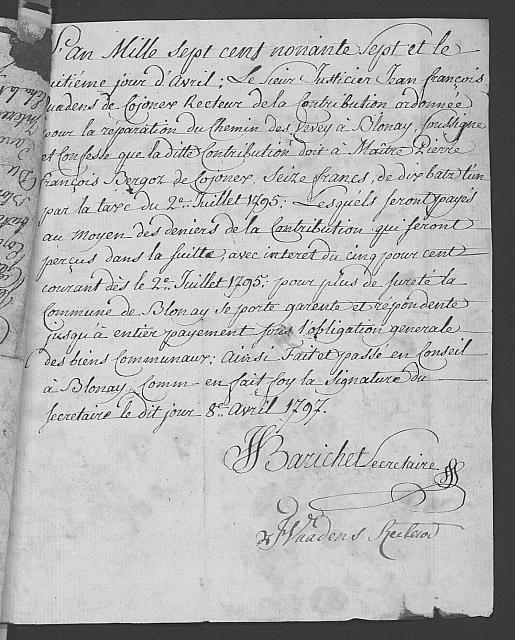 L'an Mille Sept cens nonante Sept et le
uitième jour d'Avril; Le Sieur Justicier Jean François
Vuadens de Cojonex Recteur de la Contribution ordonnée
pour la réparation du Chemin des Vevey à Blonay, soussigné
et Confesse que la ditte Contribution doit à Maître Pierre
François Bergoz de Cojonex, Seize francs, de dix batz l'un
par la taxe du 2e. Juillet 1795; Lesquels seront payés
au moyen des deniers de la Contribution qui seront
perçus dans la suitte, avec interet du cinq pour cent
courant dès le 2e. Juillet 1795; pour plus de sureté la
Commune de Blonay se porte garente et répondente
jusqu'à entier payement sous l'obligation generale
des biens Communaux; Ainsi Fait et passé en Conseil
à Blonay, Comm en fait foy la Signature du
Secretaire le dit jour 8e. Avril 1797.
Barichet Secretaire
Vuadens Recteur